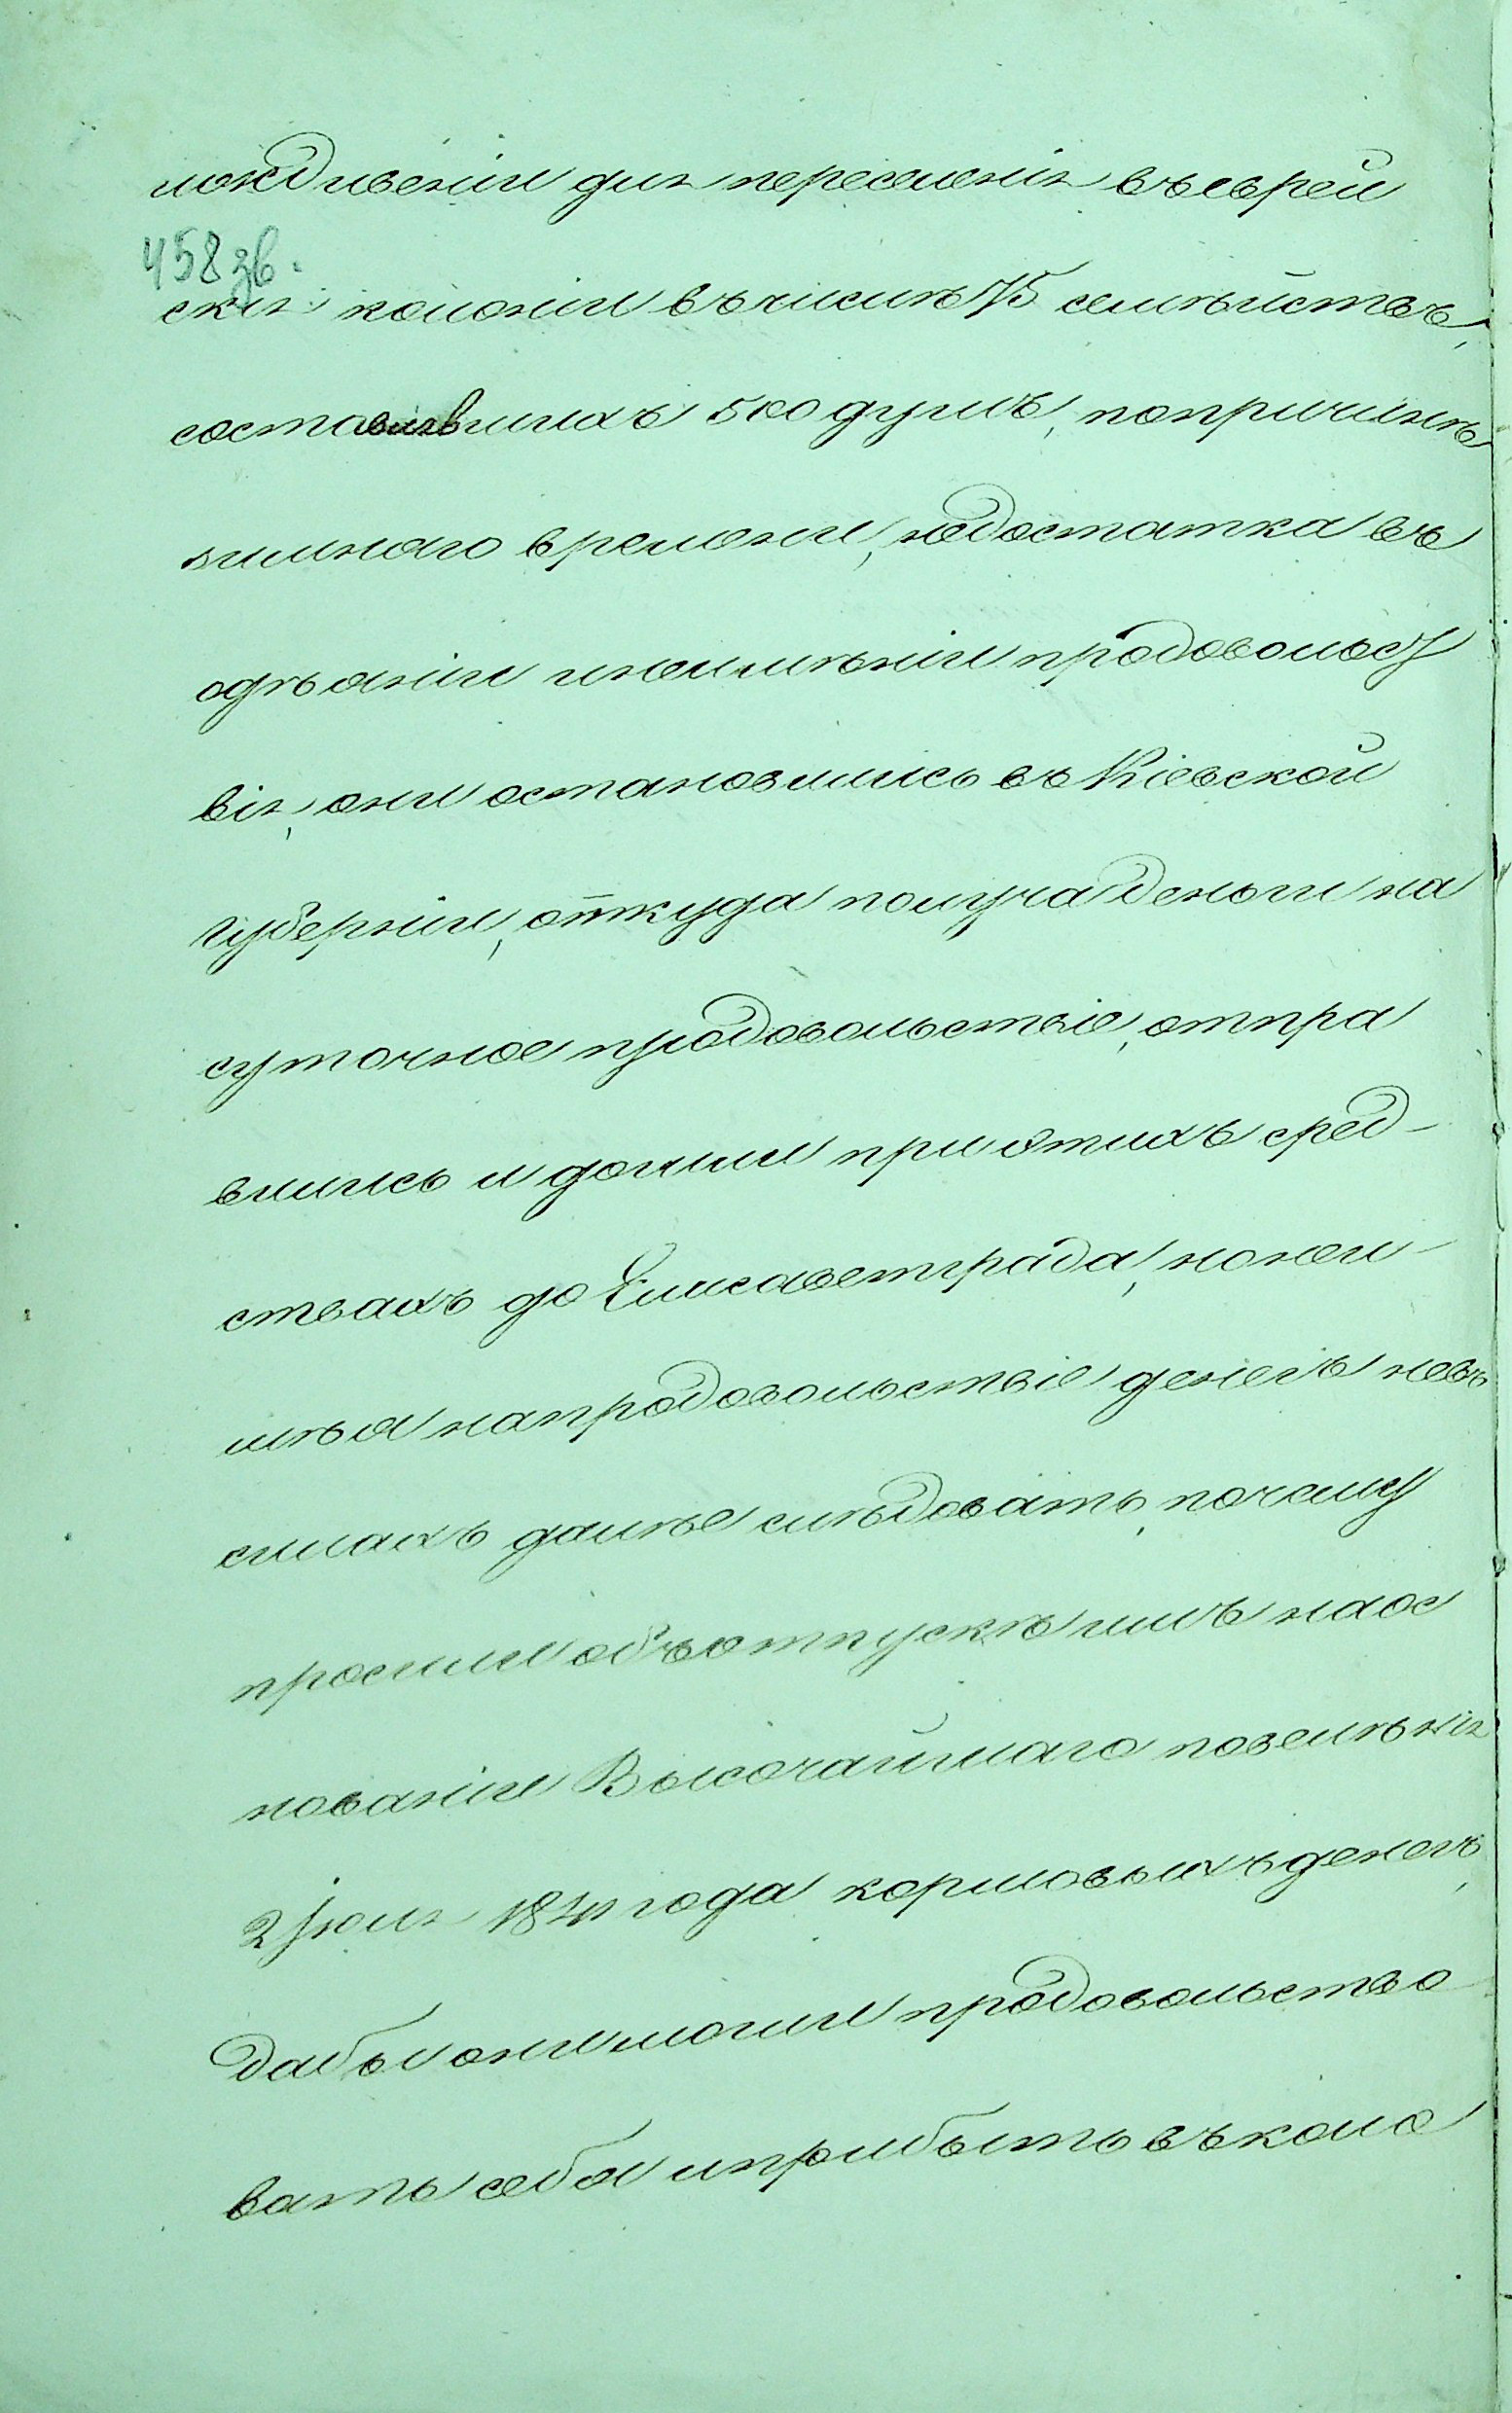 иждивеніи для переселенія въ еврей
458 зв.
скія колоніи въ числѣ 75 семѣйствъ,
составлявшихъ 500 душъ, по причинѣ
зимнаго времени, недостатка въ
одѣяніи и неимѣніи продовольст
вія, они остановились въ Кіевской
губерніи, откуда получа деньги на
суточное продовольствіе, отпра
вились и дошли при этихъ сред-
ствахъ до Елисаветграда, но неи-
мѣя на продовольствіе денегъ не въ
силахъ далѣе слѣдовать, почему
просили объ отпускѣ имъ на ос
нованіи Высочайшаго повелѣнія
2 Іюля 1841 года кормовыхъ денегъ,
дабы они могли продовольство
вать себя и прибыть въ коло